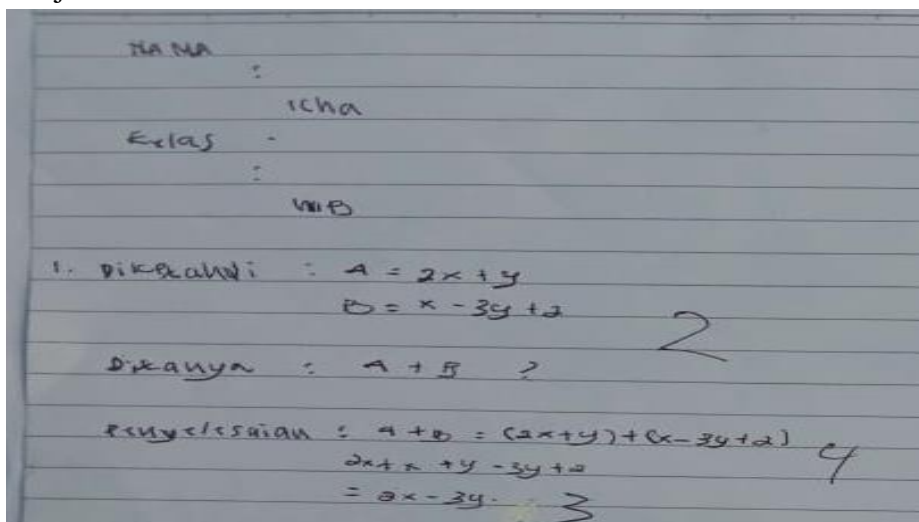 NAMA
:
icha
Kelas -
:
VIII B
1. Diketahui : A = 2x + y
B = x - 3y + 2
2
Ditanya : A + B ?
Penyelesaian : A + B = (2x+y) + (x - 3y + 2)
4
2x + x + y - 3y + 2
= 2x - 3y.
3